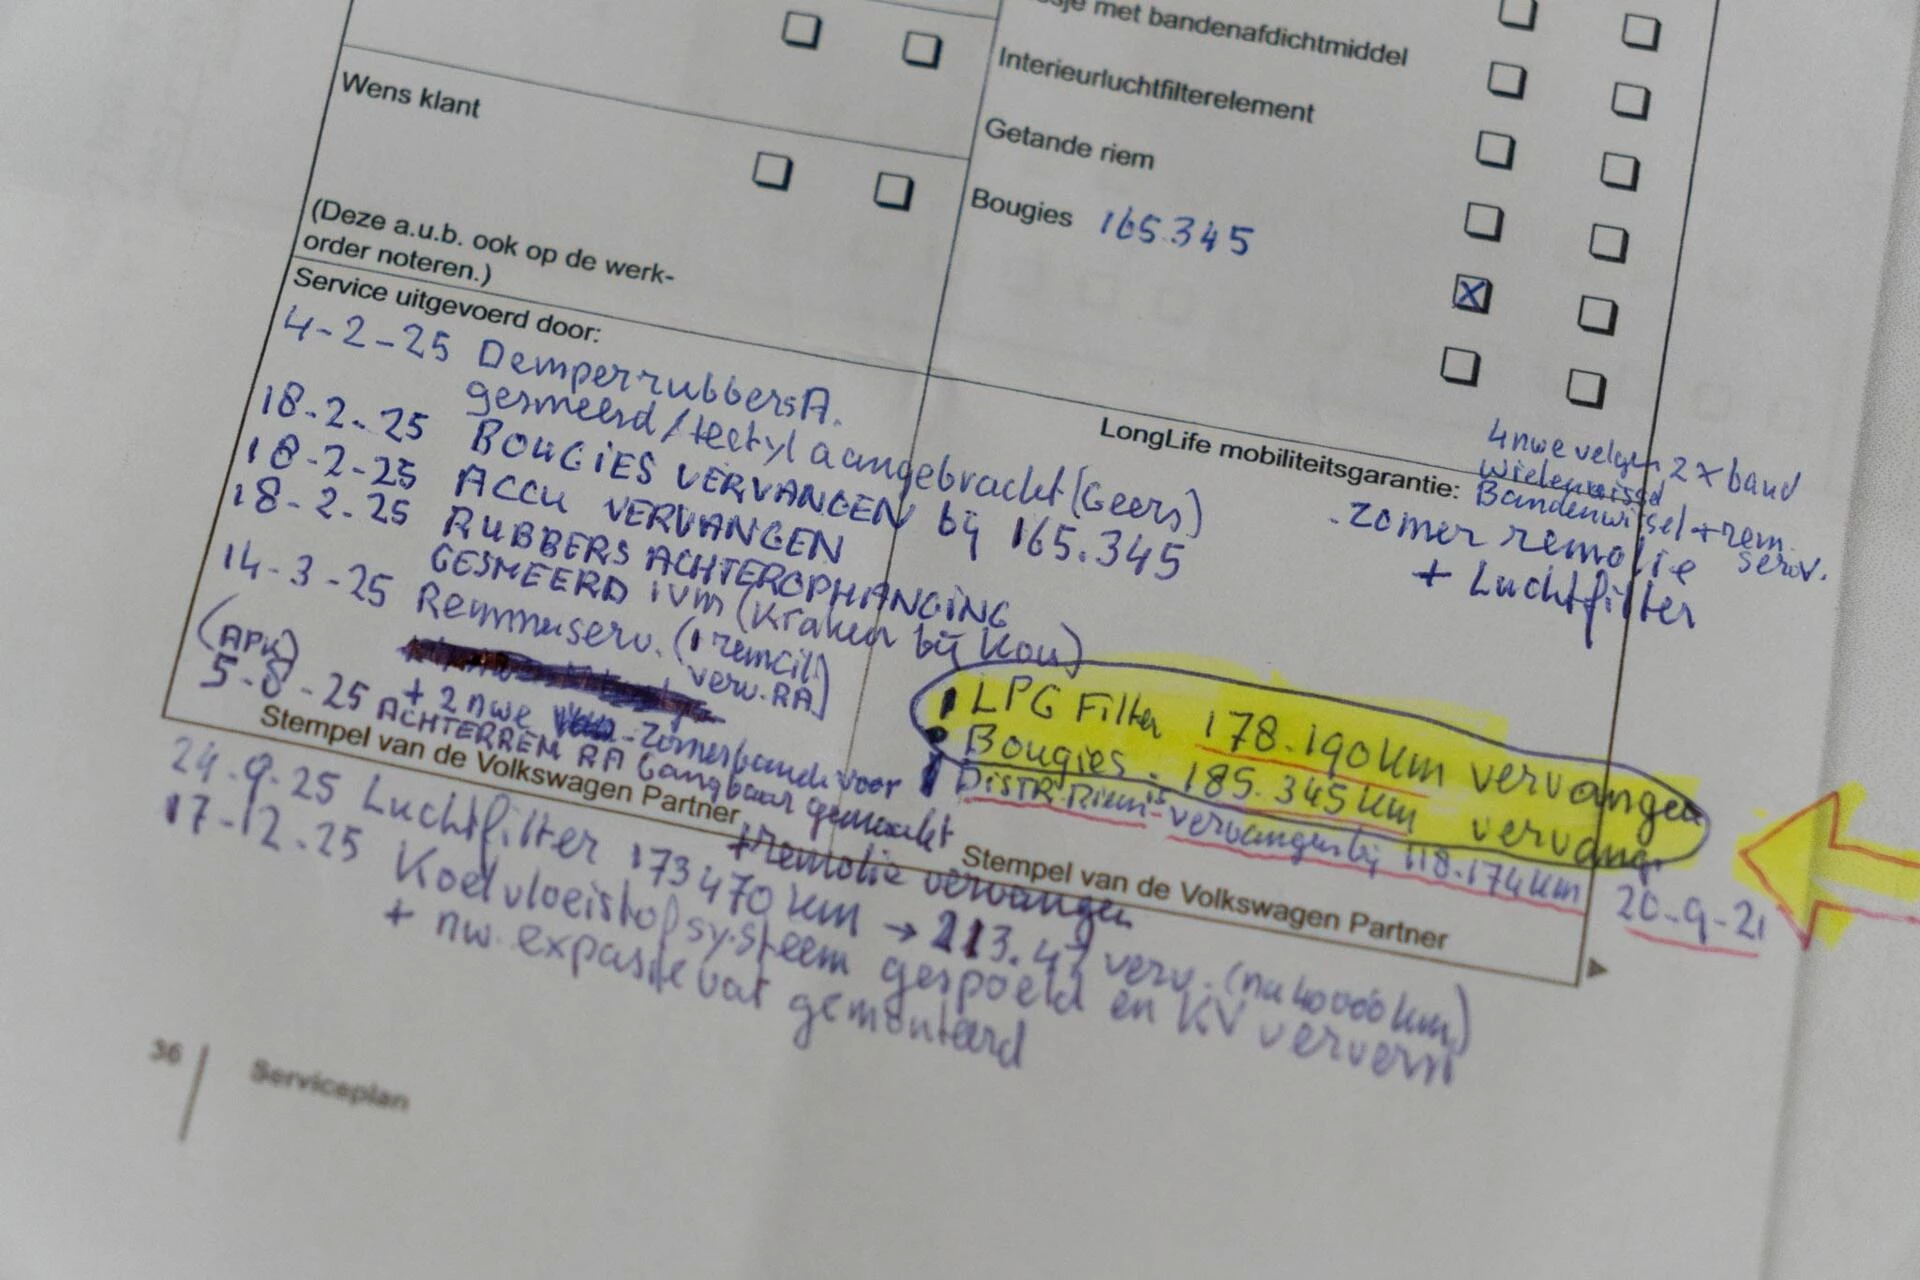 sje met bandenafdichtmiddel
Interieurluchtfilterelement
Getande riem
Bougies 165.345
Wens klant
(Deze a.u.b. ook op de werk-
order noteren.)
Service uitgevoerd door:
4-2-25 Demperrubbers A.
gesmeerd/tectyl aangebracht (Geers)
18-2-25 BOUGIES VERVANGEN bij 165.345
18-2-25 ACCU VERVANGEN
18-2-25 RUBBERS ACHTEROPHANGING
GESMEERD ivm (Kraken bij Kou)
14-3-25 Remmenserv. (1 remcil.
verv. RA)
(APK)
+ 2 nwe zomerbanden voor
5-8-25 ACHTERREM RA Gangbaar gemaakt
+remolie vervangen
Stempel van de Volkswagen Partner
24-9-25 Luchtfilter 173470 km → 213.47 verv. (na 40000 km)
17-12-25 Koelvloeistofsysteem gespoeld en KV ververst
+ nw. expasievat gemonteerd
LongLife mobiliteitsgarantie:
4 nwe velgen 2 x band
wielenwissel
Bandenwissel + rem
serv.
zomer remolie
+ Luchtfilter
LPG Filter 178.190 km vervangen
Bougies - 185.345 km vervang.
DISTR. Riem is vervangen bij 118.174 km 20-9-21
Stempel van de Volkswagen Partner
36 Serviceplan